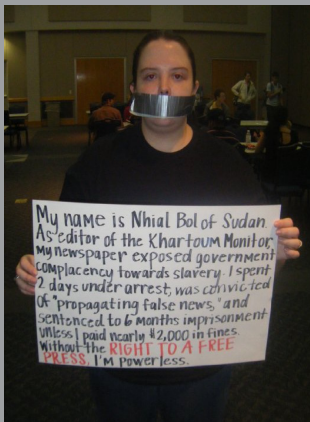 My name is Nhial Bol of Sudan.
As editor of the Khartoum Monitor,
my newspaper exposed government
complacency towards slavery. I spent
2 days under arrest, was convicted
of "propagating false news," and
sentenced to 6 months imprisonment
unless I paid nearly $2,000 in fines.
Without the RIGHT TO A FREE
PRESS, I'm powerless.